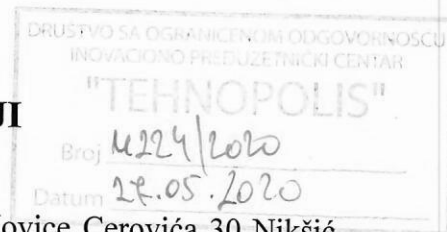 DRUŠTVO SA OGRANIČENOM ODGOVORNOŠĆU
INOVACIONO PREDUZETNIČKI CENTAR
"TEHNOPOLIS"
JI
Broj U224/2020
Datum 27.05.2020
Novice Cerovića 30 Nikšić